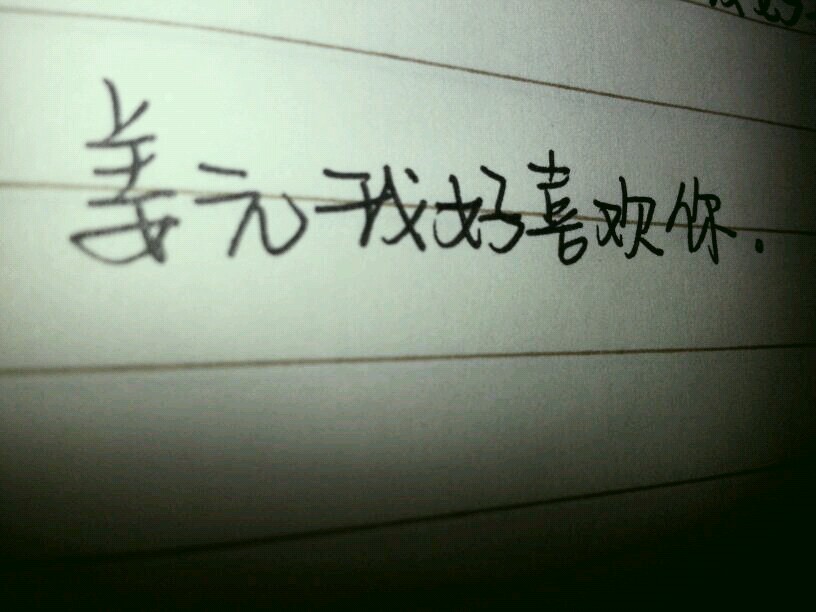 姜元我好喜欢你.